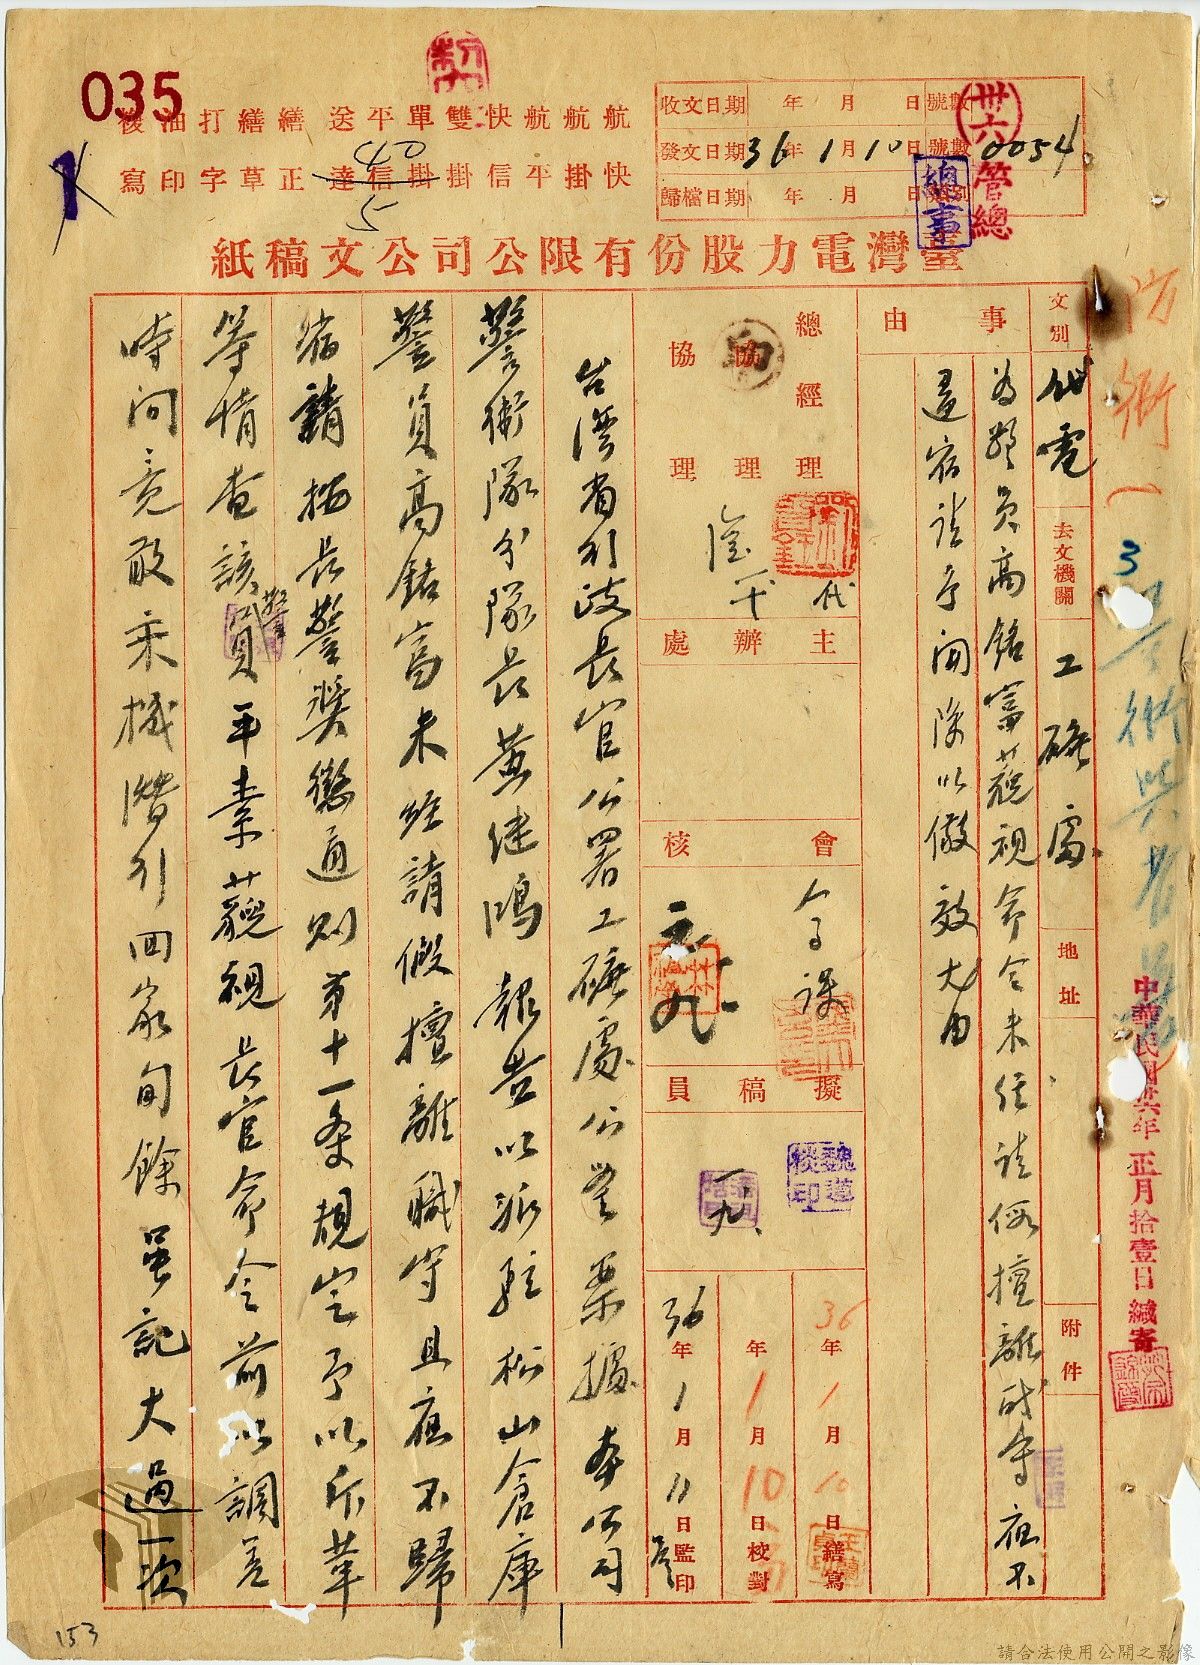 035
航 航 航 快 雙 單 平 送 繕 繕 打 油 校
快 掛 平 信 掛 掛 信 達 正 草 字 印 寫
40
5
收文日期 年 月 日 號數
發文日期 36年1月10日 號數 0054
歸檔日期 年 月 日
卅六管總
總事
臺灣電力股份有限公司公文稿紙
文別 代電
去文機關 工礦處
地址
附件
事由
為警員高銘富藐視命令未經請假擅離職守夜不
返宿請予開除以儆效尤由
總經理
協理
協理
代
主辦處
會核
擬稿員
魏蓮
36年1月10日繕寫
年1月10日校對
36年1月11日監印
台灣省行政長官公署工礦處公鑒案據本公司
警衛隊分隊長黃建鴻報告以派駐松山倉庫
警員高銘富未經請假擅離職守且夜不歸
宿請按長警獎懲通則第十一条規定予以斥革
等情查該警員平素藐視長官命令前以調差
時間竟敢乘機潛行回家旬餘虽記大過一次
中華民國卅六年正月拾壹日緘寄
3
153
請合法使用公開之影像